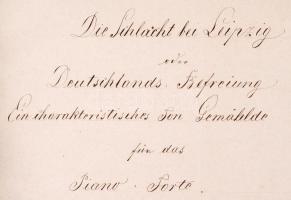 Die Schlacht bei Leipzig
oder
Deutschlands Befreiung
Ein charakteristisches Ton Gemählde
für das
Piano-Forte.